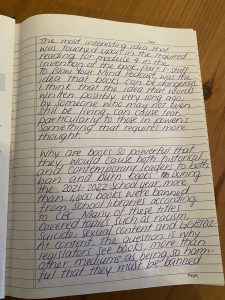 The most interesting idea that
was touched upon in the required
reading for module 4 in the
invention of the book (part 1) Stuff
To Blow Your Mind Podcast, was the
idea that books can be dangerous.
I think that the idea that words
written possibly very long ago,
by someone who may not even
still be living, can cause fear,
particularly to those in power is
something that requires more
thought.
Why are books so powerful that
they would cause both historical
and contemporary leaders to both
ban and burn books? During
the 2021-2022 school year, more
than 1,600 books were banned
from school libraries according
to CBC. Many of these titles
covered topics such as racism,
suicide, sexual content and LGBTQIA2
A+ content. The question is why
legislators see books, more than
other mediums as being so harm-
ful that they must be banned.
Page